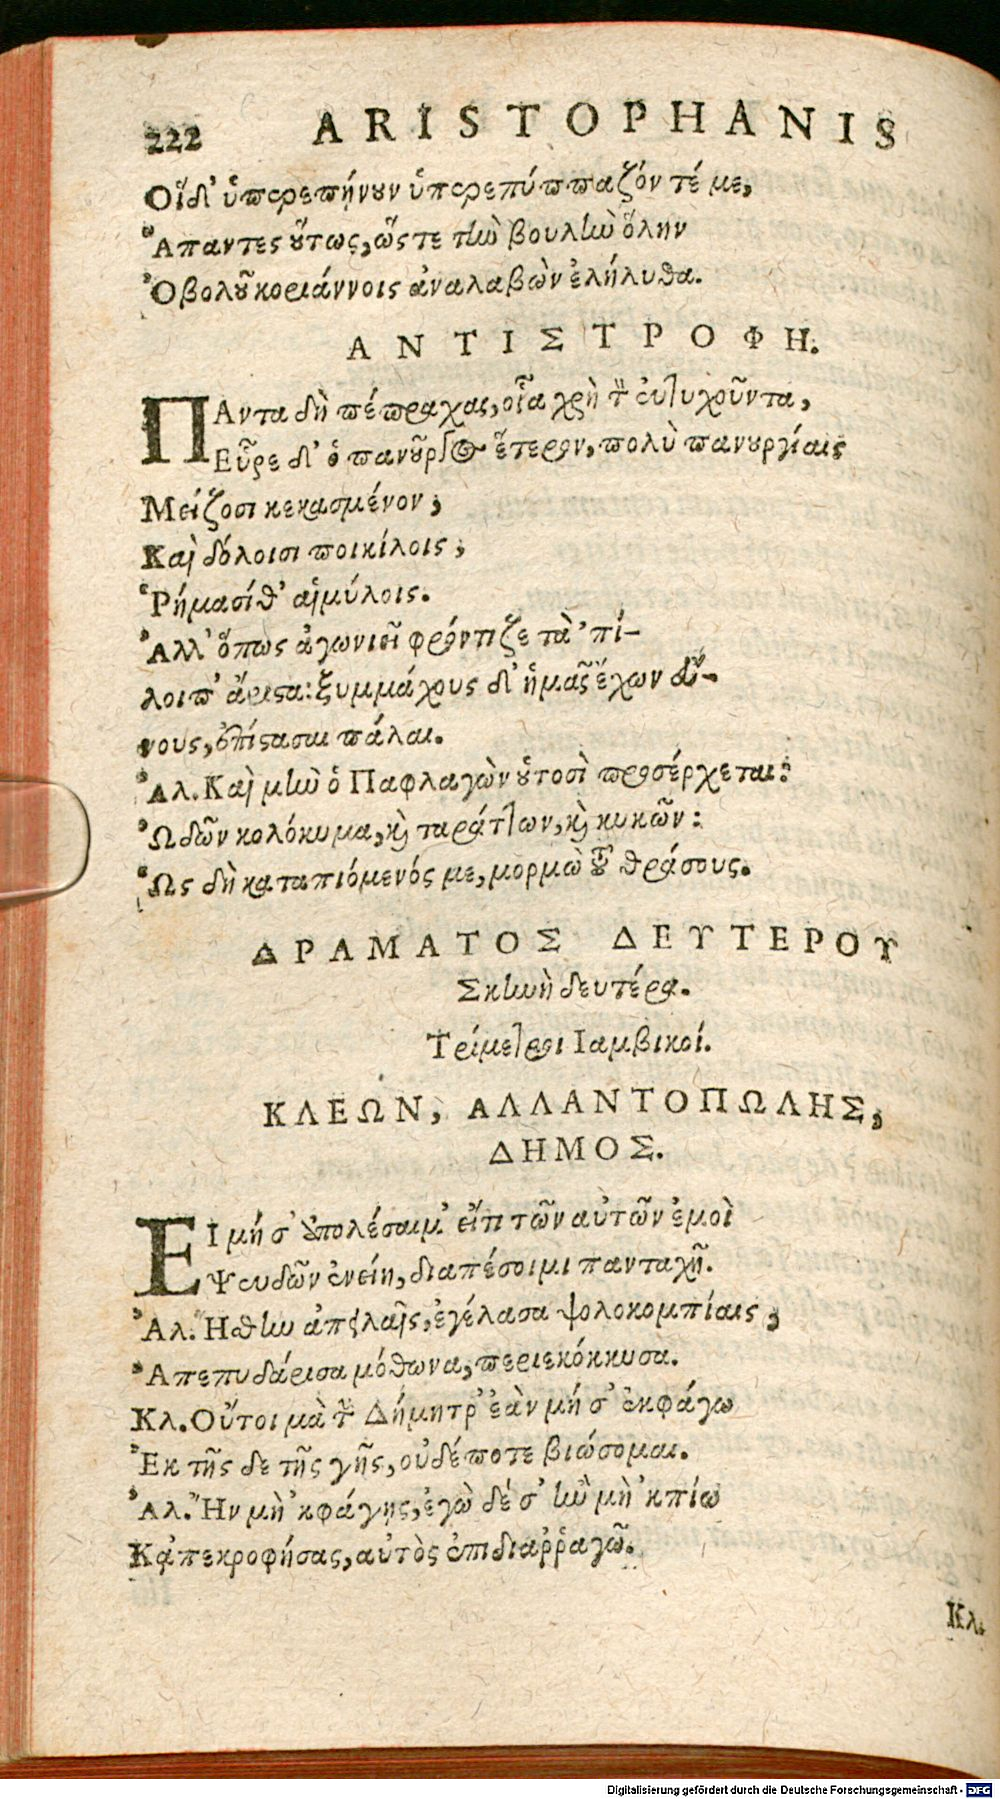 222 ARISTOPHANIS
Οἵδ' ὑπερεπῄνουν ὑπερεπύππαζόν τέ με,
Ἅπαντες οὕτως, ὥςτε τὴν βουλὴν ὅλην
Ὀβολοῦ κοριάννοις ἀναλαβὼν ἐλήλυθα.
ΑΝΤΙΣΤΡΟΦΗ.
ΠΑντα δὴ πέπραχας, οἷα χρὴ τὸν εὐτυχοῦντα,
Εὗρε δ' ὁ πανοῦργος ἕτερον, πολὺ πανουργίαις
Μείζοσι κεκασμένον,
Καὶ δόλοισι ποικίλοις,
Ῥήμασίθ' αἱμύλοις.
Ἀλλ' ὅπως ἀγωνιεῖ φρόντιζε τὰ 'πί-
λοιπ' ἄριστα: ξυμμάχους δ' ἡμᾶς ἔχων εὔ-
νους, ἐπίστασαι πάλαι.
Ἀλ. Καὶ μὴν ὁ Παφλαγὼν οὑτοσὶ προσέρχεται:
Ὠδῶν κολόκυμα, καὶ ταράττων, καὶ κυκῶν:
Ὡς δὴ καταπιόμενός με, μορμὼ τοῦ θράσους.
ΔΡΑΜΑΤΟΣ ΔΕΥΤΕΡΟΥ
Σκηνὴ δευτέρα.
Τρίμετροι Ιαμβικοί.
ΚΛΕΩΝ, ΑΛΛΑΝΤΟΠΩΛΗΣ,
ΔΗΜΟΣ.
ΕΙ μή σ' ἀπολέσαιμ' εἴ τι τῶν αὐτῶν ἐμοὶ
Ψευδῶν ἐνείη, διαπέσοιμι πανταχῇ.
Ἀλ. Ἥσθην ἀπειλαῖς, ἐγέλασα ψολοκομπίαις,
Ἀπεπυδάρισα μόθωνα, περιεκόκκυσα.
Κλ. Οὔτοι μὰ τὴν Δήμητρ' ἐὰν μή σ' ἐκφάγω
Ἐκ τῆς δε τῆς γῆς, οὐδέποτε βιώσομαι.
Ἀλ. Ἢν μὴ 'κφάγῃς, ἐγὼ δέ σ' ἢν μὴ 'κπίω
Κᾀπεκροφήσας, αὐτὸς ἐπιδιαῤῥαγῶ.
Κλ.
Digitalisierung gefördert durch die Deutsche Forschungsgemeinschaft - DFG